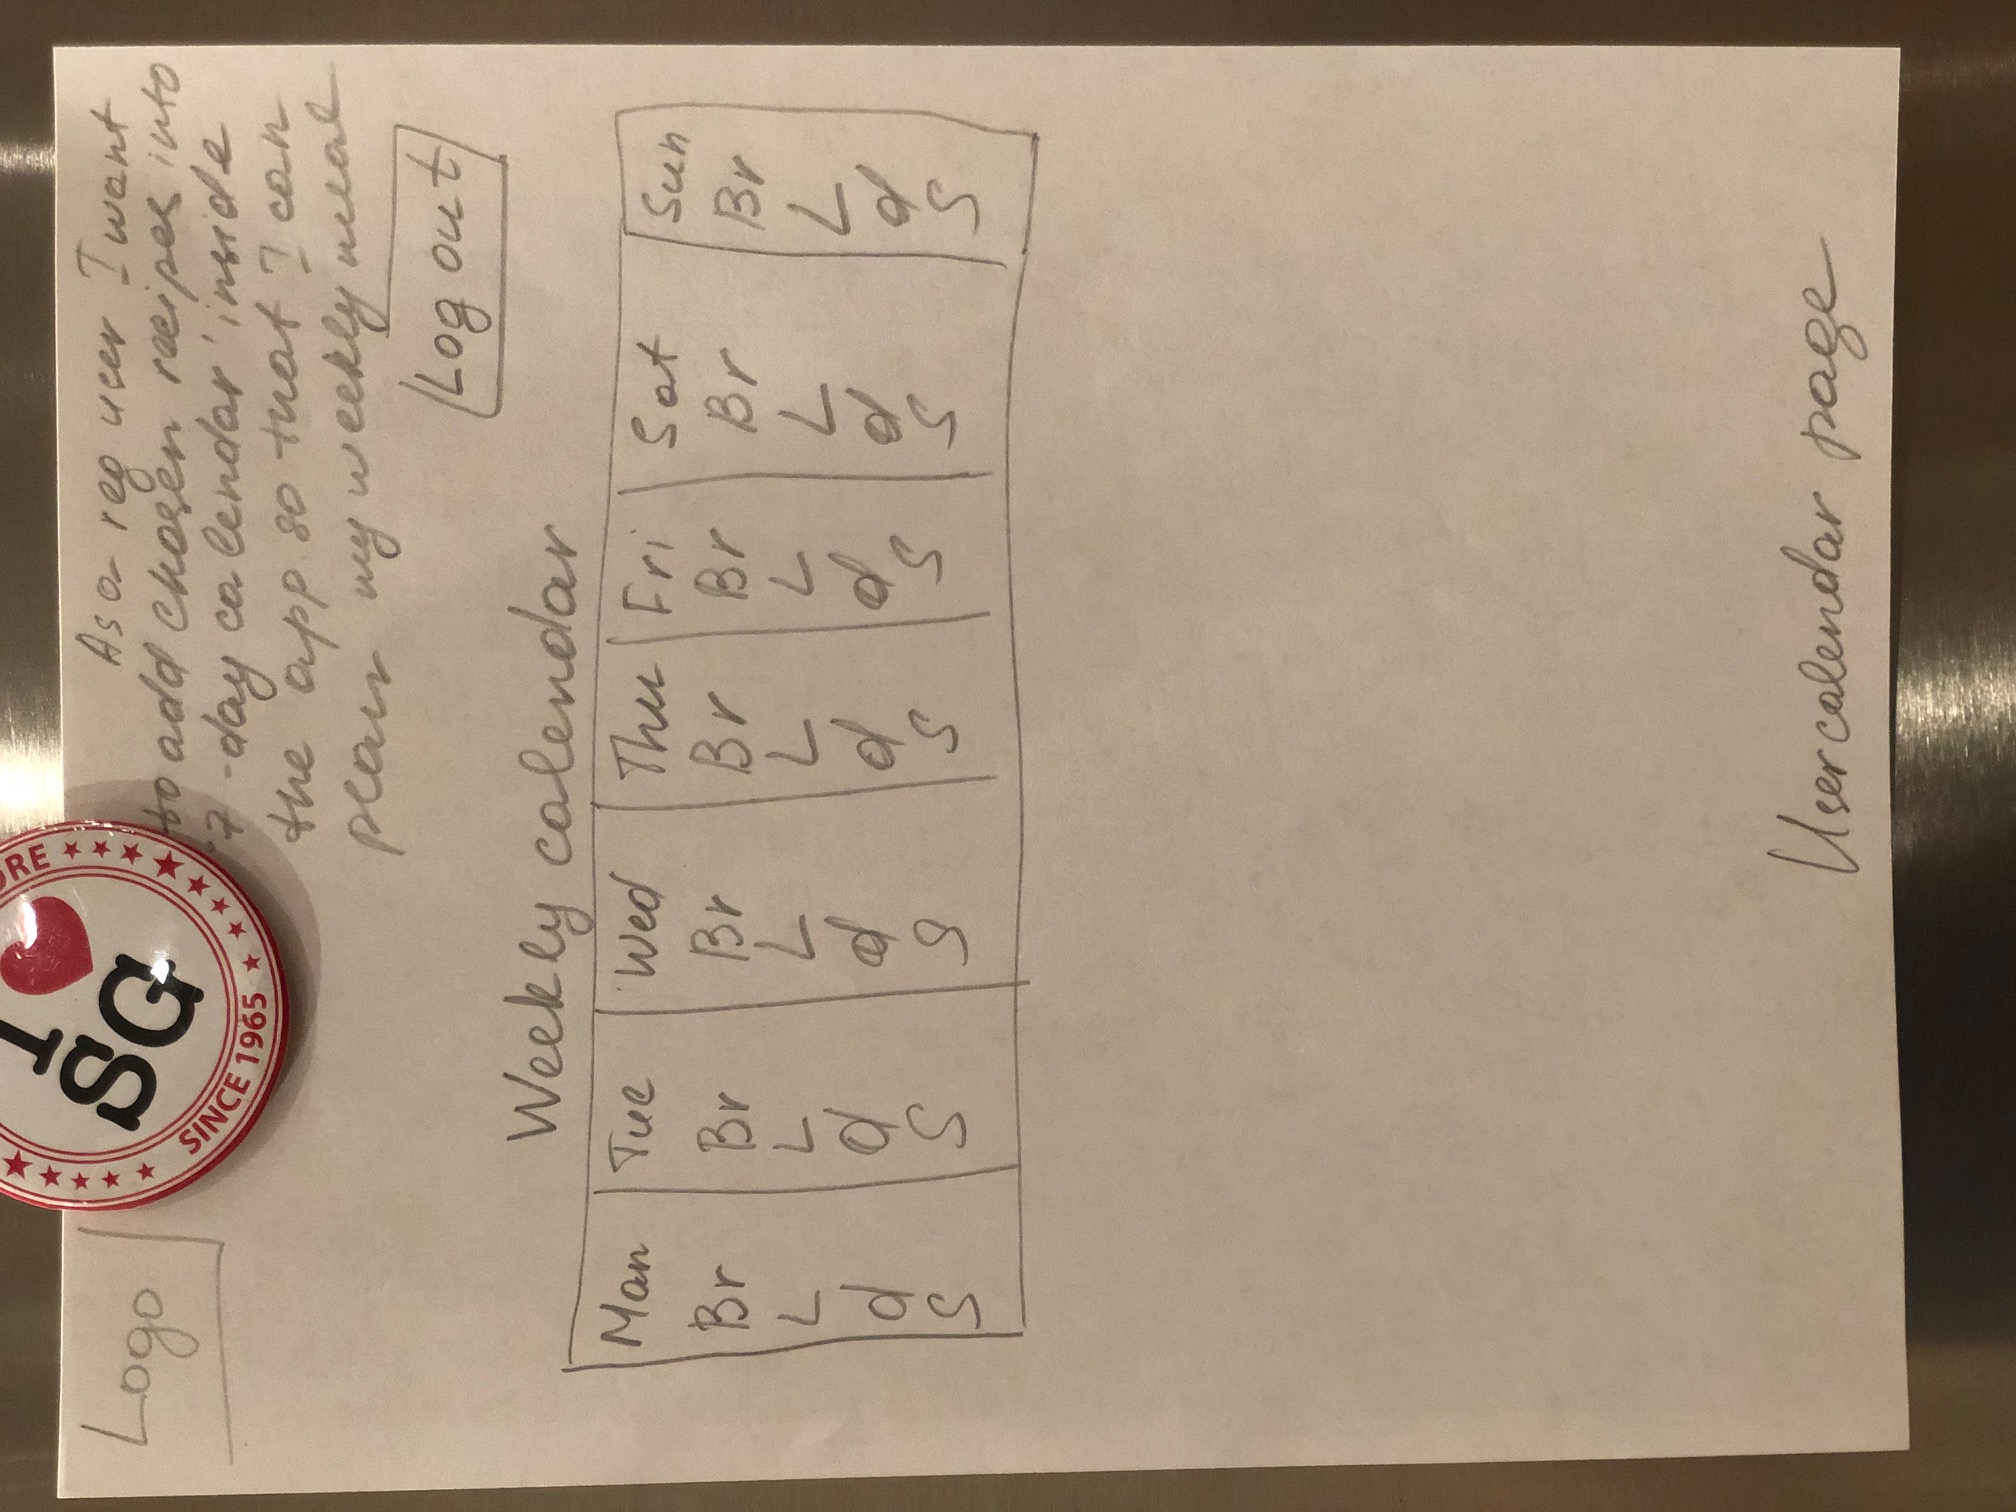 Logo
I
SG
ORE
SINCE 1965
As a reg user I want
to add chosen recipes into
'7-day calendar' inside
the app so that I can
plan my weekly meal
Log out
Weekly calendar
Man Tue Wed Thu Fri Sat Sun
Br Br Br Br Br Br Br
L L L L L L L
d d d d d d d
S S S S S S S
User calendar page